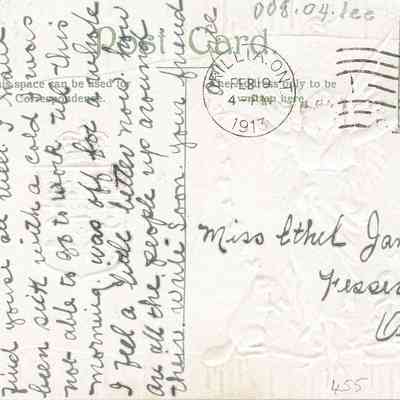 008.04.lee
Post Card
space can be used for
Correspondence.
The address only to be
written here.
ILLIX. ON
FEB 9
4 - P
1913
find youse all well I have
been sick with a cold I was
not able to go to work till this
morning was off for
I feel a little better now. how
are all the people up around
there write soon your friend
Miss Ethel Jan
Fesser
455